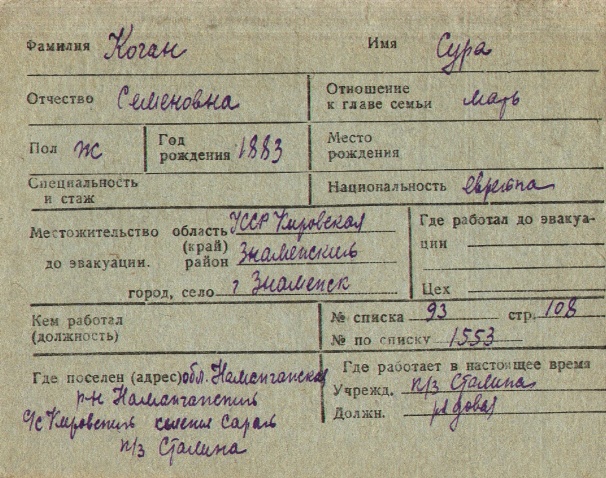 Фамилия Коган Имя Сура
Отчество Семеновна Отношение к главе семьи мать
Пол ж Год рождения 1883 Место рождения
Специальность и стаж Национальность еврейка
Местожительство область УССР Кировская Где работал до эвакуа-
(край) ции
до эвакуации. район Знаменский
город, село г Знаменск Цех
Кем работал (должность) № списка 93 стр. 108
№ по списку 1553
Где поселен (адрес) обл. Наманганская Где работает в настоящее время
р-н Наманганский Учрежд. к/з Сталина
с/с Кировский селение Долж. рядовая
к/з Сталина